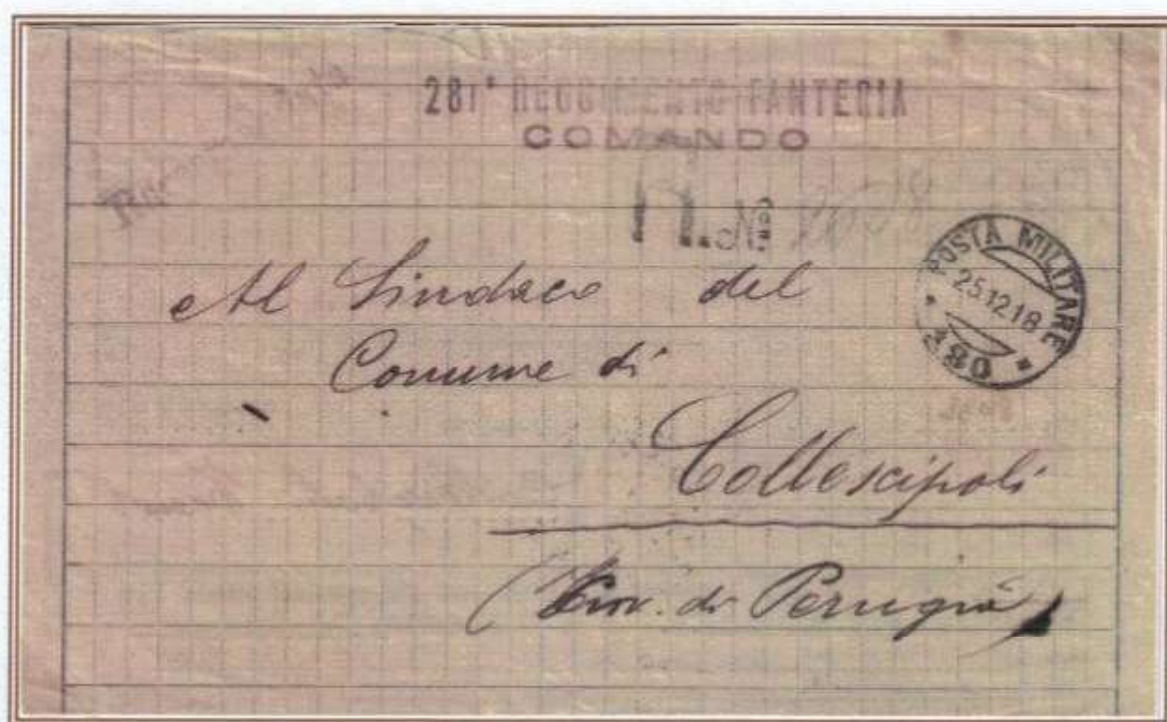 281° REGGIMENTO FANTERIA
COMANDO
R. №
POSTA MILITARE
25.12.18
Al Sindaco del
Comune di
Collescipoli
(Prov. di Perugia)